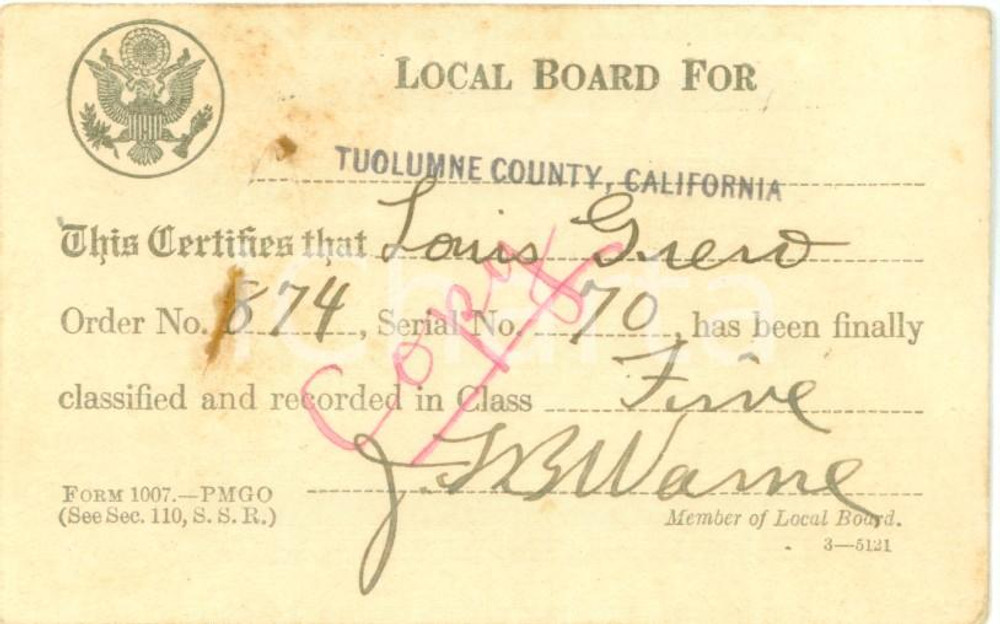 LOCAL BOARD FOR
TUOLUMNE COUNTY, CALIFORNIA
This Certifies that Louis
Order No. 874, Serial No. 70, has been finally
classified and recorded in Class Five
Copy
Warne
FORM 1007.—PMGO
(See Sec. 110, S. S. R.)
Member of Local Board.
3—5121